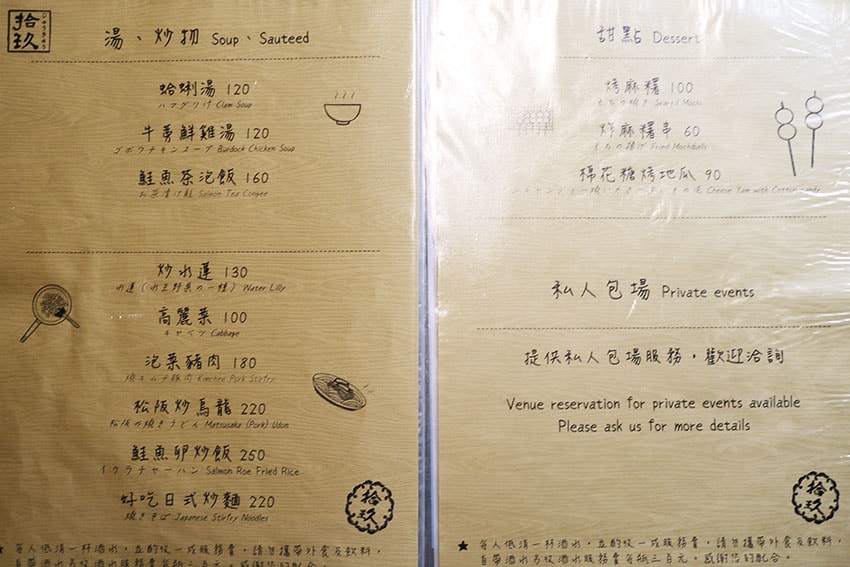 拾玖
じゅうきゅう
湯、炒物 Soup、Sauteed
蛤蜊湯 120
ハマグリ汁 Clam Soup
牛蒡鮮雞湯 120
ゴボウチキンスープ Burdock Chicken Soup
鮭魚茶泡飯 160
お茶漬け鮭 Salmon Tea Congee
炒水蓮 130
水蓮(水生野菜の一種) Water Lilly
高麗菜 100
キャベツ Cabbage
泡菜豬肉 180
焼キムチ豚肉 Kimchee Pork Stirfry
松阪炒烏龍 220
松阪の焼きうどん Matsusaka (Pork) Udon
鮭魚卵炒飯 250
イクラチャーハン Salmon Roe Fried Rice
好吃日式炒麵 220
焼きそば Japanese Stirfry Noodles
拾玖
★ 每人低消一杯酒水,並酌收一成服務費,請勿攜帶外食及飲料,
自帶酒水另收酒水服務費每瓶三百元。感謝您的配合。
甜點 Dessert
烤麻糬 100
もちの焼き Seared Mochi
炸麻糬串 60
もちの揚げ Fried Mochiballs
棉花糖烤地瓜 90
Cheese Yam with
私人包場 Private events
提供私人包場服務,歡迎洽詢
Venue reservation for private events available
Please ask us for more details
拾玖
★ 每人低消一杯酒水,並酌收一成服務費,請勿攜帶外食及飲料,
自帶酒水另收酒水服務費每瓶三百元。感謝您的配合。